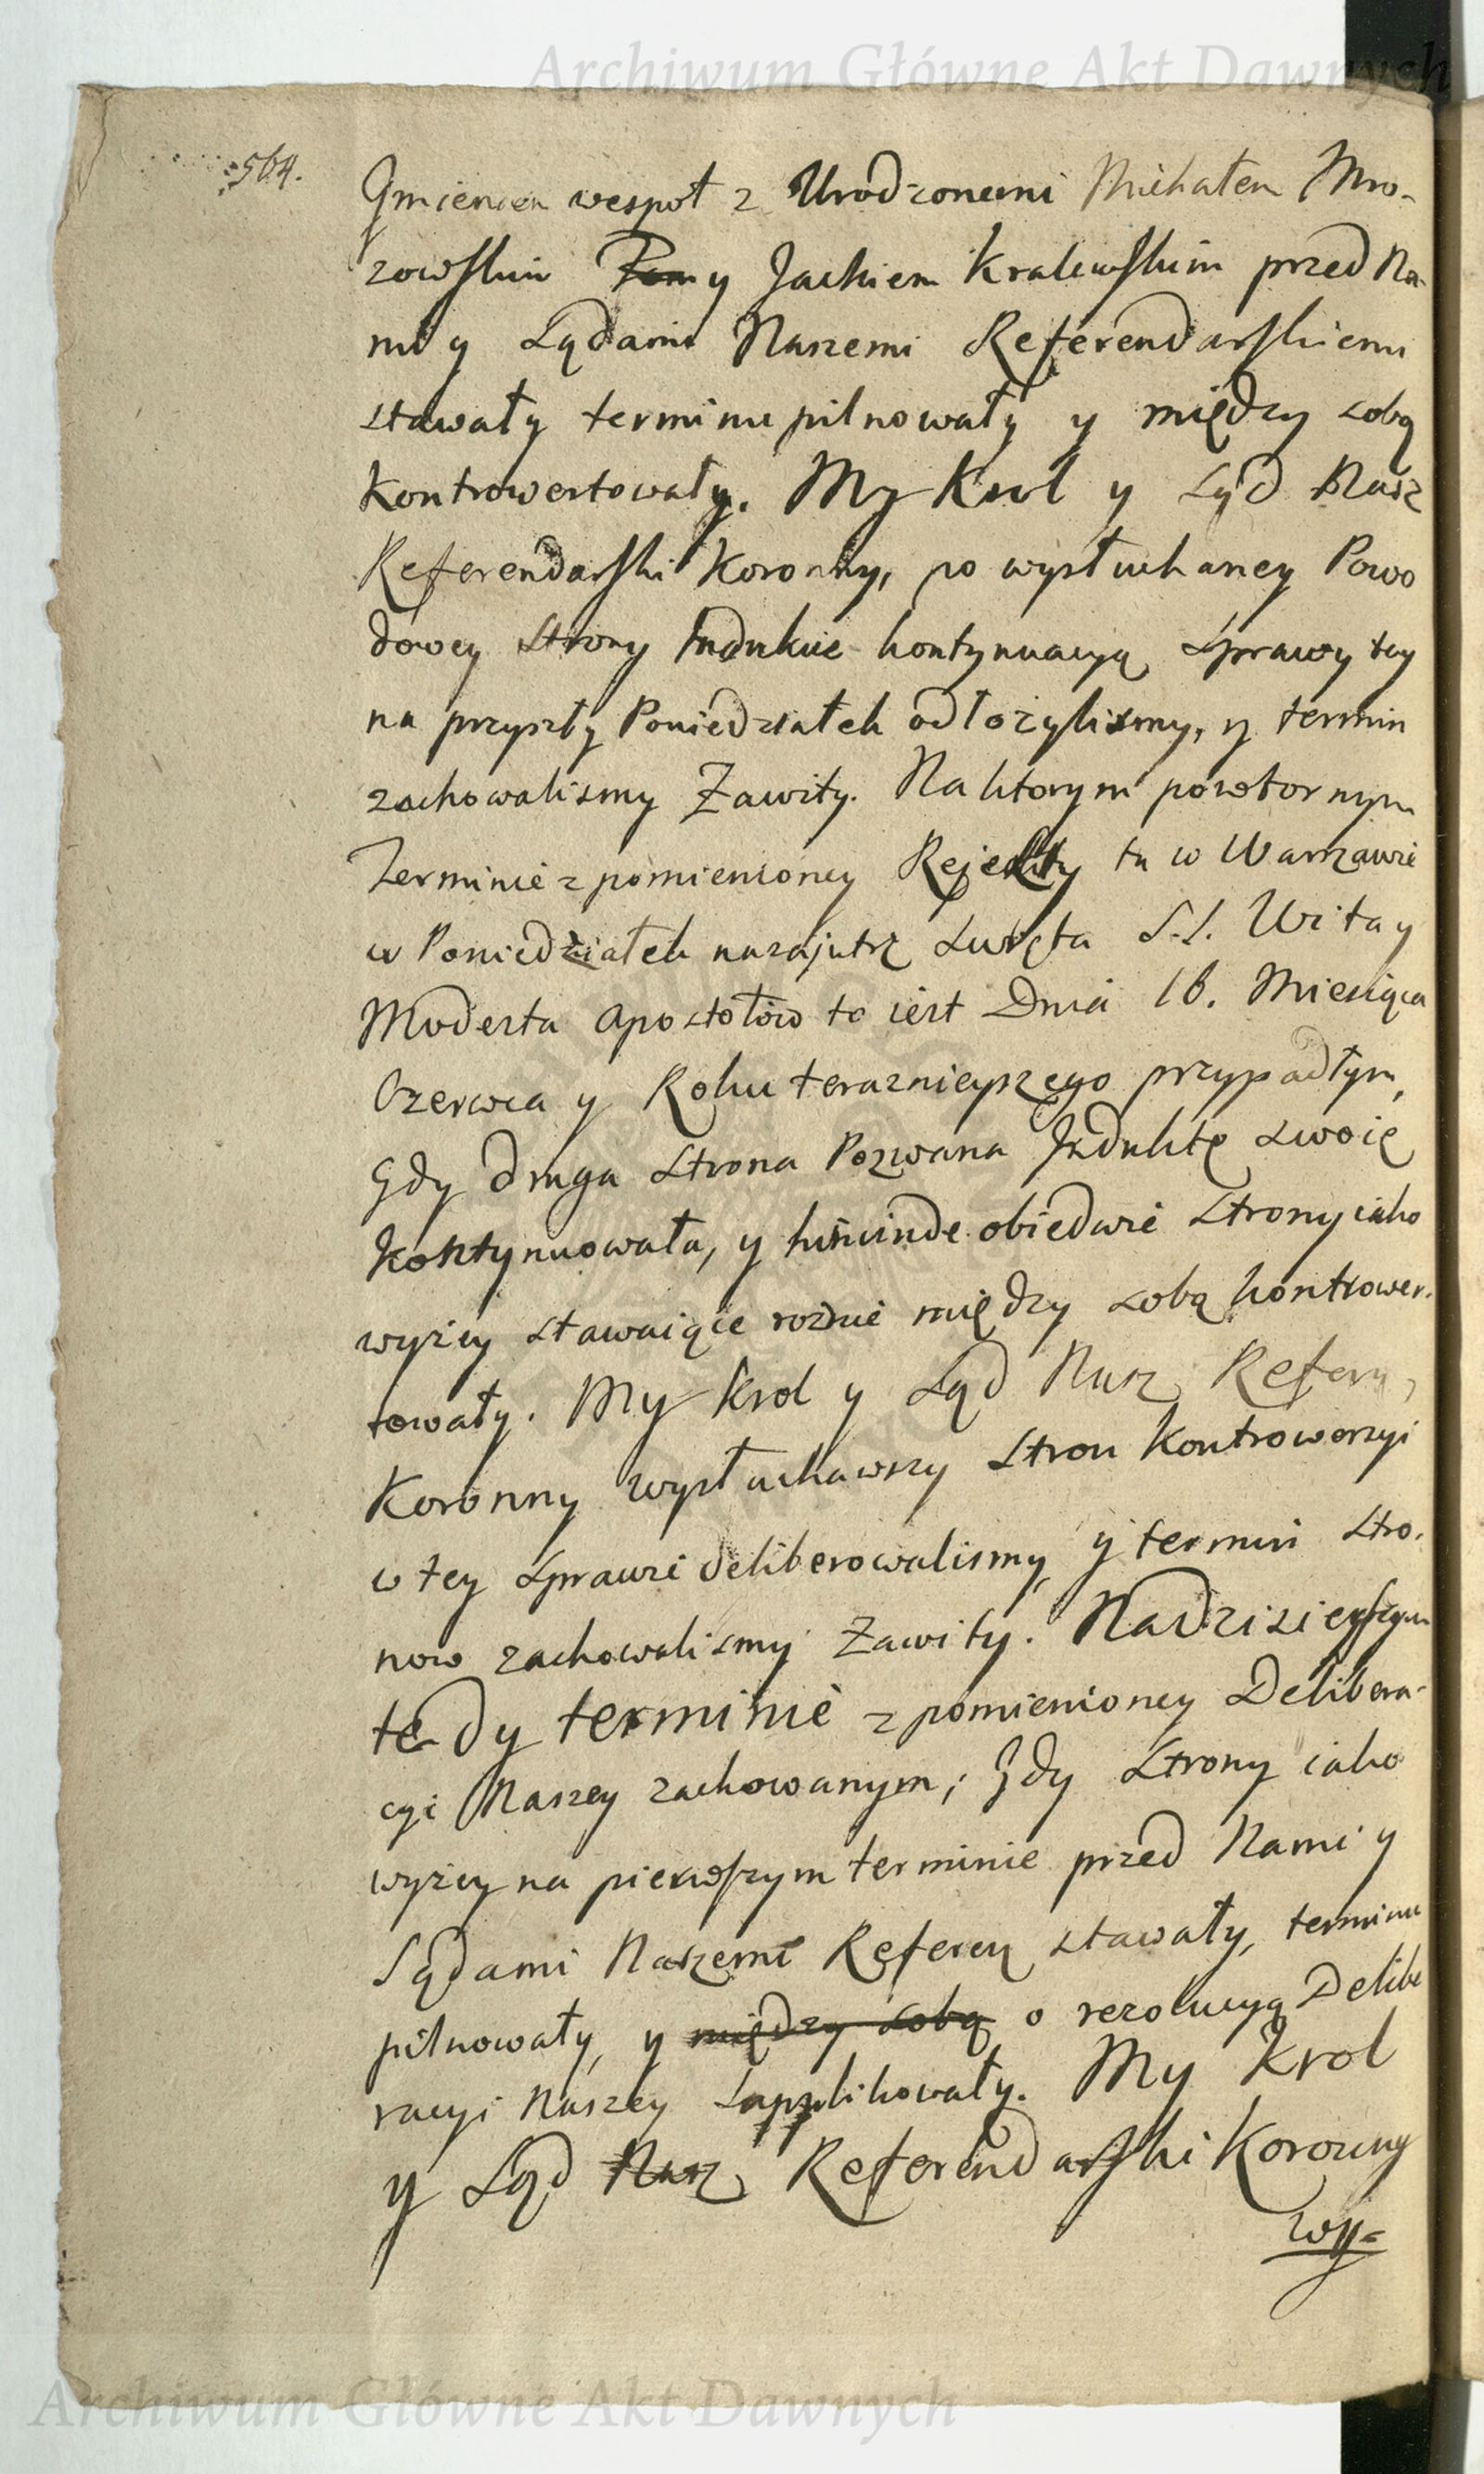 Archiwum Główne Akt Dawnych
564.
Imieniem wespoł z Urodzonemi Michałem Mro-
zowskim Pan y Jackiem Kralewskim przed Na-
mi y Sądami Naszemi Referendarskiemi
stawały terminu pilnowały y między sobą
kontrowertowały. My Krol y Sąd Nasz
Referendarski Koronny, po wysłuchaney Powo
dowey strony Indukcie kontynuacyą sprawy tey
na przyszły Poniedziałek odłożylismy, y termin
zachowalismy Zawity. Na ktorym powtornym
Terminie z pomienioney Rejekty tu w Warszawie
w Poniedziałek nazajutrz Swięta S.S. Wita y
Modesta Apostołów to iest Dnia 16. Miesiąca
Czerwca y Roku teraznieyszego przypadłym,
Gdy druga Strona Pozwana Induktę swoię
kontynuowała, y hincinde obiedwie Strony iako
wyżey stawaiące rożnie między sobą kontrower-
towały. My Krol y Sąd Nasz Referen
Koronny wysłuchawszy Stron Kontrowersyi
w tey sprawie deliberowalismy, y termin Stro-
now zachowalismy Zawity. Na Dzisieyszym
tedy terminie z pomienioney Delibera-
cyi Naszey zachowanym; Gdy Strony iako
wyżey na pierwszym terminie przed Nami y
Sądami Naszemi Referen stawały, terminu
pilnowały, y między sobą o rezolucyą Delibe
racyi Naszey supplikowały. My Krol
y Sąd Nasz Referendarski Koronny
wy-
Archiwum Główne Akt Dawnych